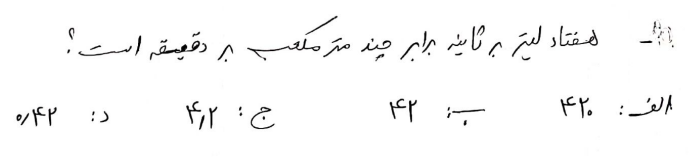 هفتاد لیتر بر ثانیه برابر چند متر مکعب بر دقیقه است؟
الف: ۴۲۰ ب: ۴۲ ج: ۴٫۲ د: ۰٫۴۲